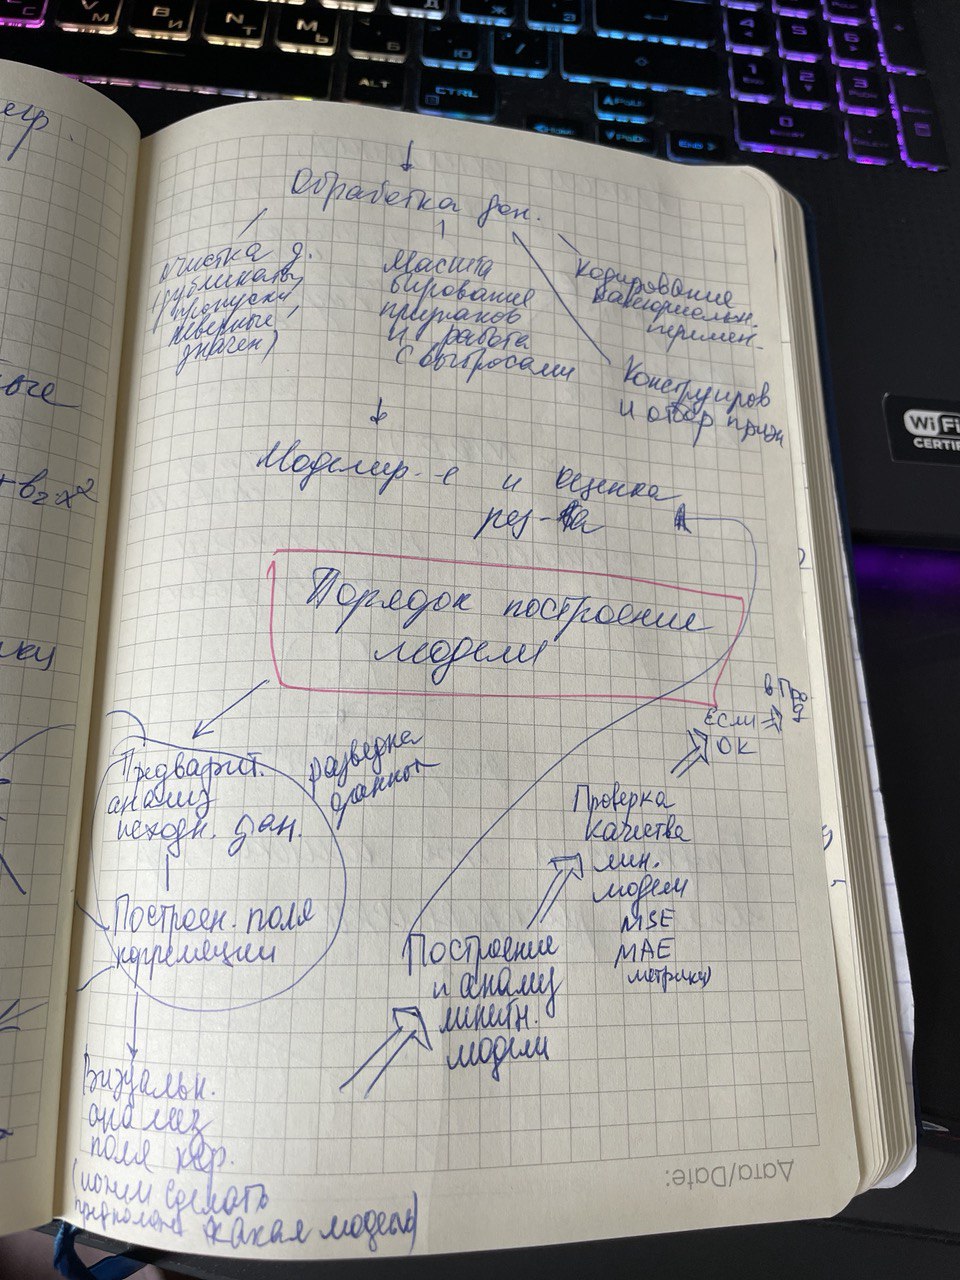 Обработка дан.
очистка д.
(дубликаты,
пропуски,
неверные
значен)
Масшта
бирование
признаков
и работа
с выбросами
Кодирование
категориальн.
перемен.
Конструиров
и отбор призн
Моделир-е и оценка
рез-та
Порядок построение
модели
Предварит.
анализ
исходн. дан.
разведка
данных
Построен. поля
корреляции
Визуальн.
анализ
поля кор.
(можем сделать
какая модель)
Построение
и анализ
линейн.
модели
Проверка
качества
лин.
модели
MSE
MAE
метрики)
Если
ОК
в Прод
Дата/Date:
+ b₂·x²
ALT
CTRL
END
WiFi
CERTIF